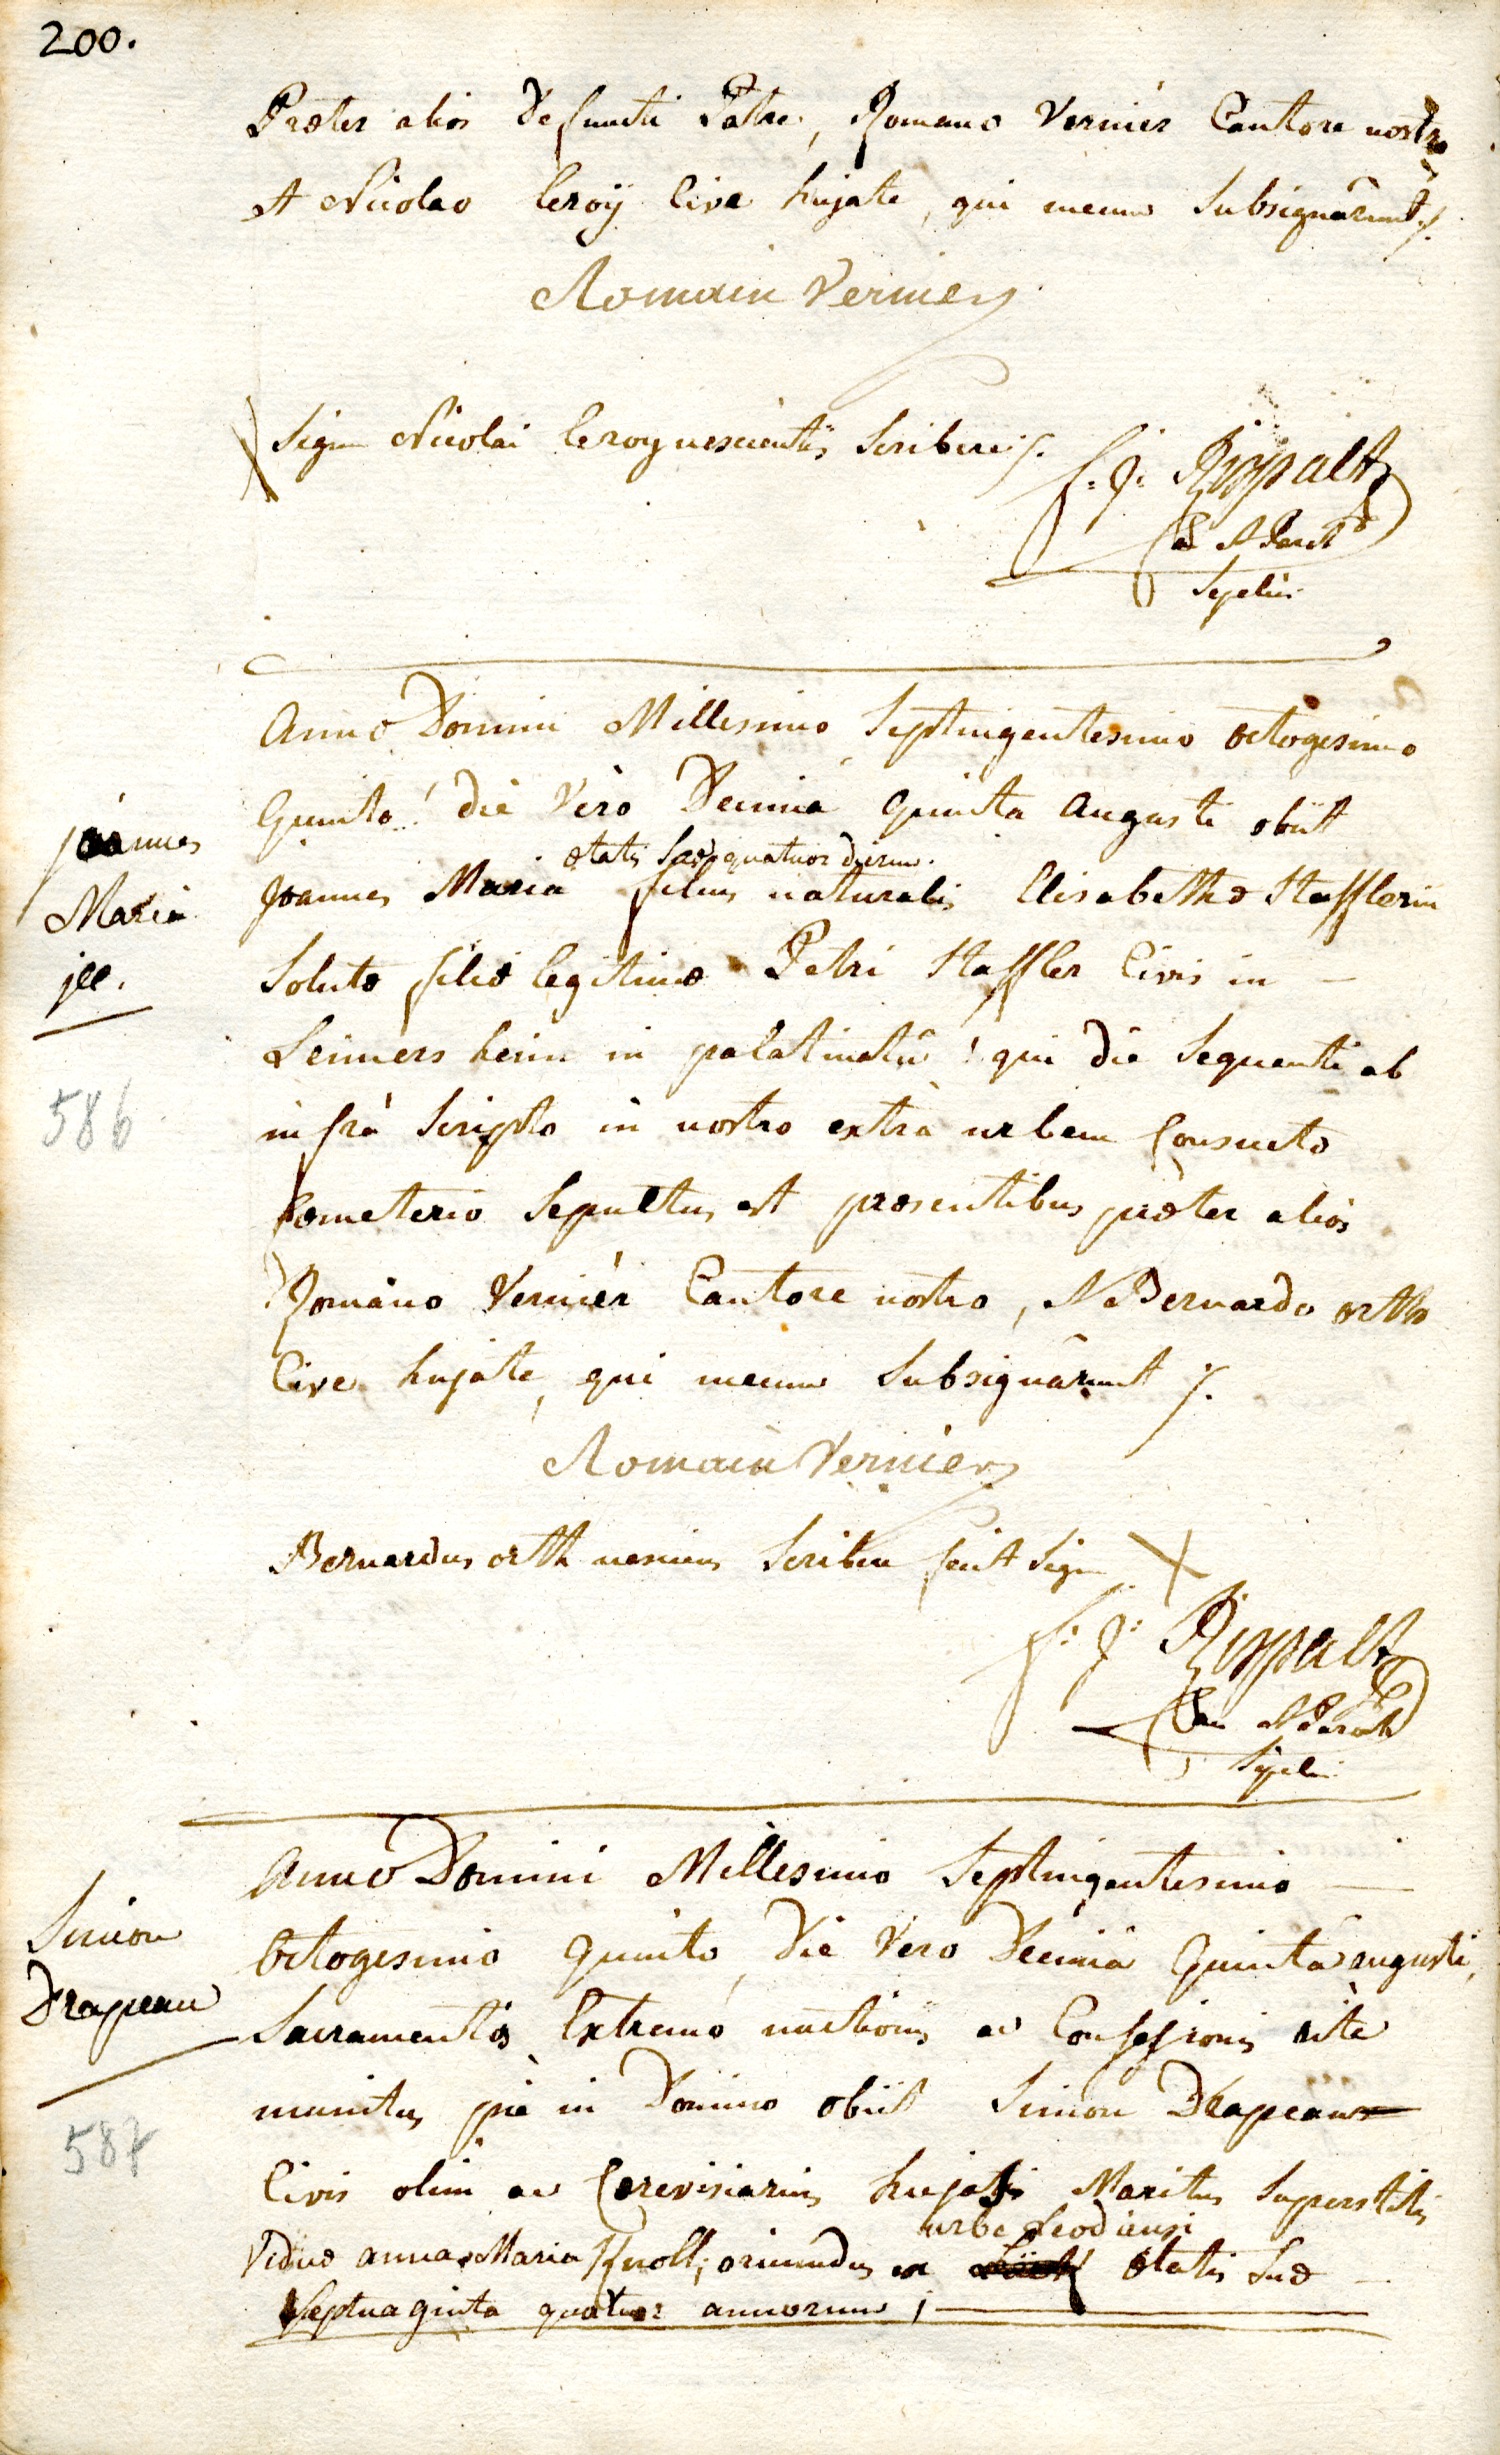 200.
Præter alios Defuncti Patre, Romano Vernier Cantore nostro
et Nicolao leroÿ Cive hujate, qui mecum Subsignârunt ./.
Romain Vernier
Sign Nicolai leroy nescientis Scribere ./.
f: j: Rippalt
Sepelivi
Anno Domini Millesimo Septingentesimo octogesimo
Quinto! die Vero Decimâ Quinta Augusti obiit
ætatis suæ quatuor dierum.
joannes
Maria
jll.
Joannes Maria filius naturalis Elisabethæ Stafflerin
Solutæ filiæ legitimæ Petri Staffler Civis in —
Leimersheim in palatinatu! qui die Sequenti ab
586
infrà Scripto in nostro extrà urbem Consueto
Cœmeterio Sepultus est præsentibus præter alios
Romano Vernier Cantore nostro, et Bernardo orth
Cive hujate, qui mecum Subsignârunt ./.
Romain Vernier
Bernardus orth nesciens Scribere fecit Sign X
f: j: Rippalt
Sepelivi
Anno Domini Millesimo Septingentesimo —
Simon
Drapeau
octogesimo Quinto, Die Vero Decimâ Quintâ augusti,
Sacramentis Extremæ unctionis ac Confessionis rite
munitus piè in Domino obiit Simon Drapeau
587
Civis olim ac Cerevisiarius hujatis Maritus Superstitis
urbe Leodiensi
Viduæ anna Maria Knoll; oriundus ex ætatis Suæ —
Septuaginta quatuor annorum;